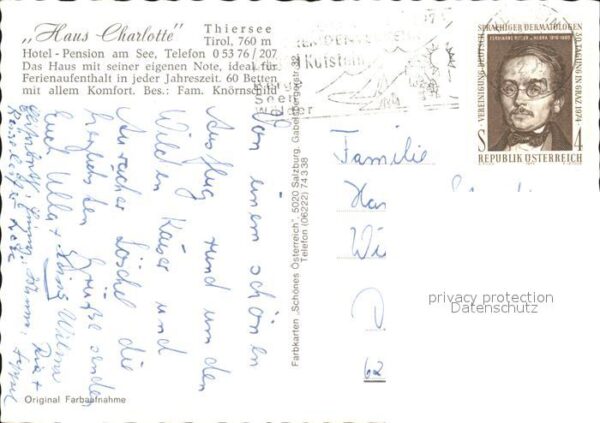 „Haus Charlotte” Thiersee
Tirol, 760 m
Hotel-Pension am See, Telefon 0 53 76 / 207
Das Haus mit seiner eigenen Note, ideal für
Ferienaufenthalt in jeder Jahreszeit. 60 Betten
mit allem Komfort. Bes.: Fam. Knörnschild
Von einem schönen
Ausflug rund um den
Wilden Kaiser und
Auracher Löchel die
herzlichsten Grüße senden
Euch Ulla +
Wilma
Original Farbaufnahme
Farbkarten „Schönes Österreich”, 5020 Salzburg, Gabelsbergerstr.
Telefon (06222) 74 3 38
Kufstein
Seen
Wälder
VEREINIGUNG DEUTSCHSPRACHIGER DERMATOLOGEN
30. TAGUNG IN GRAZ 1974
FERDINAND RITTER v. HEBRA 1816-1880
S 4
REPUBLIK ÖSTERREICH
Familie
Ha
Wi
D
62
privacy protection
Datenschutz